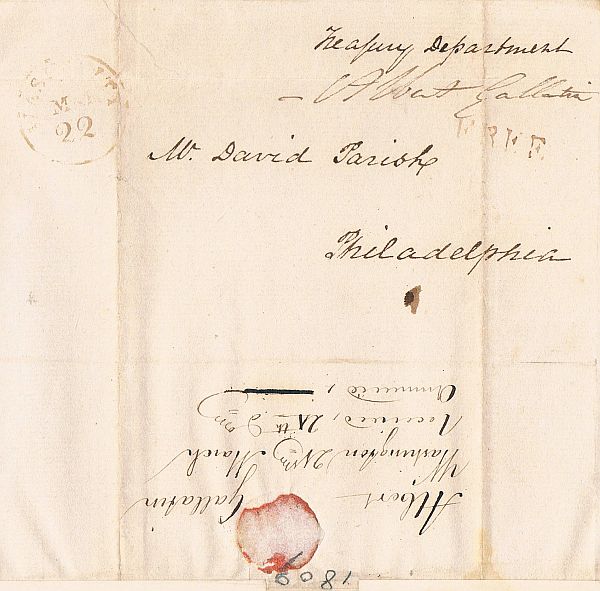 Treasury Department
Albert Gallatin
FREE
MAR
22
Mr. David Parish
Philadelphia
Albert Gallatin
Washington 21 March
received, 25th
1809